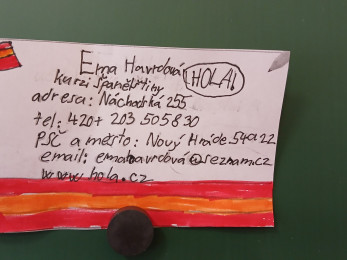 Ema Havrdová HOLA!
kurzi Španělštiny
adresa: Náchodská 255
tel: 420+ 203 505 830
PSČ a město: Nový Hrádec 540 22
email: emahavrdová@seznam.cz
www.hola.cz